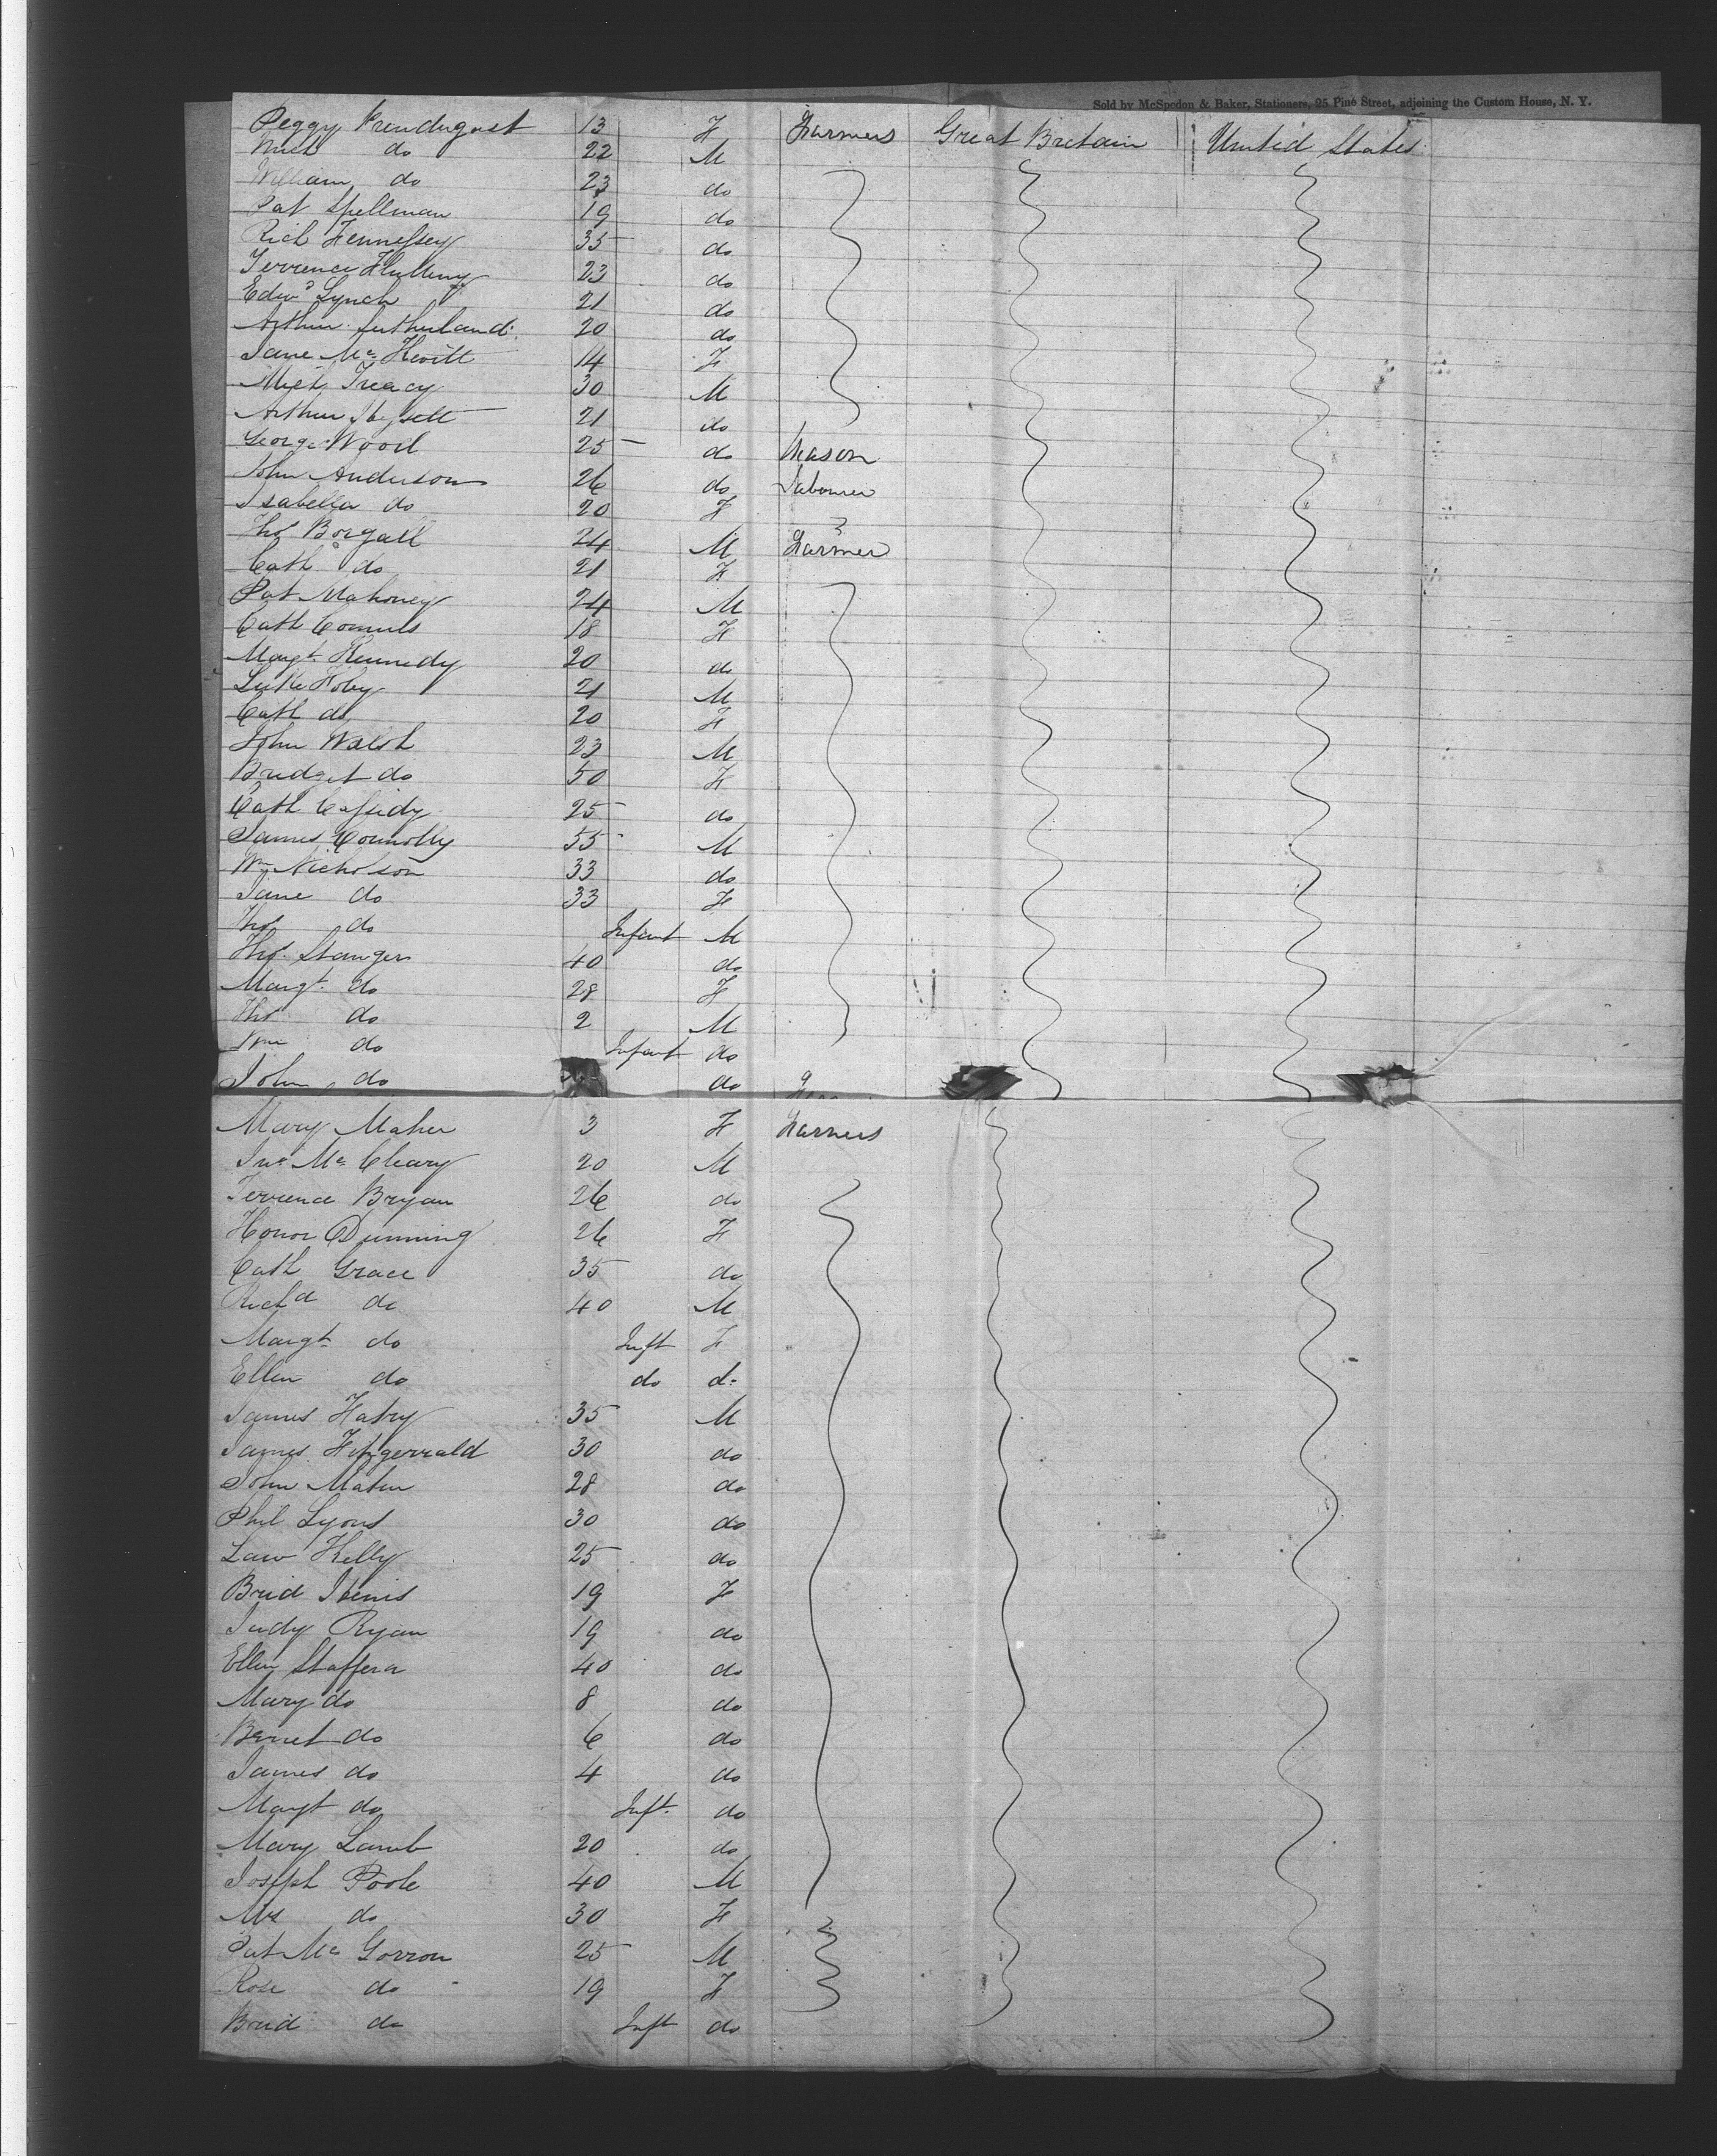 Sold by McSpedon & Baker, Stationers, 25 Pine Street, adjoining the Custom House, N. Y.
Peggy Prendergast 13 F Farmers Great Britain United States
Mich do 22 M
William do 23 do
Pat Spellman 19 do
Rich Hennessey 35 do
Terrence 23 do
Edwd Lynch 21 do
Arthur Sutherland 20 do
Jane Mc Kevitt 14 F
Mich Treacy 30 M
Arthur 21 do
George Wood 25 do Mason
John Anderson 26 do Labourer
Isabella do 20 F
Thos Borgall 24 M Farmer
Cath do 21 F
Pat Mahoney 24 M
Cath 18 F
Margt Kennedy 20 do
Luke Foley 21 M
Cath do 20 F
John Walsh 23 M
Bridget do 50 F
Cath Cassidy 25 do
James Connolly 55 M
Wm Nicholson 33 do
Jane do 33 F
Thos do Infant M
Thos Stanger 40 do
Margt do 28 F
Thos do 2 M
Wm do Infant do
John do do
Mary Maher 3 F Farmers
Jno Mc Cleary 20 M
Terrence Bryan 26 do
Honor Dunning 26 F
Cath Grace 35 do
Richd do 40 M
Margt do Inft F
Ellen do do do
James 35 M
James Fitzgerrald 30 do
John Maher 28 do
Phil Lyons 30 do
Law Kelly 25 do
Brid 19 F
Judy Ryan 19 do
Ellen 40 do
Mary do 8 do
Bernet do 6 do
James do 4 do
Margt do Inft do
Mary Lamb 20 do
Joseph Poole 40 M
Mrs do 30 F
Pat Mc Gorron 25 M
Rose do 19 F
Brid do Inft do